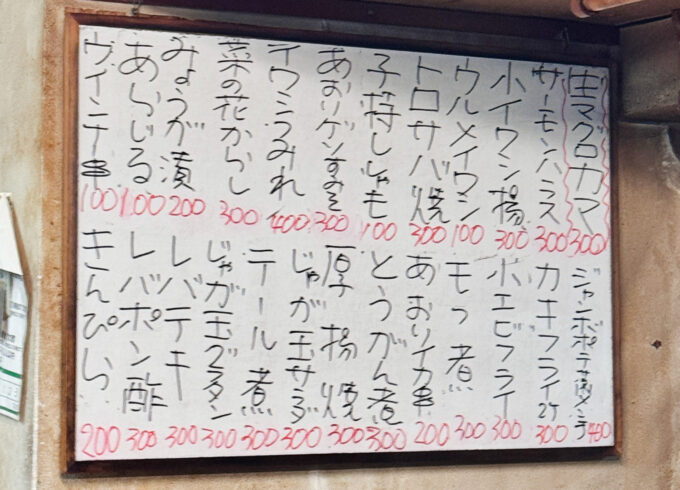 生マグロカマ 300
サーモンハラス 300
小イワシ揚 300
ウルメイワシ 100
トロサバ焼 300
子持ししゃも 100
あおりゲソすみそ 300
イワシつみれ 400
菜の花からし 300
みょうが漬 200
あらじる 100
ウインナー串 100
ジャンボポテサラ 400
カキフライ2ケ 300
小エビフライ 300
モツ煮 300
あおりイカ串 200
とうがん煮 300
厚揚焼 300
じゃが玉サラダ 300
テール煮 300
じゃが玉グラタン 300
レバテキ 300
レバポン酢 300
きんぴら 200